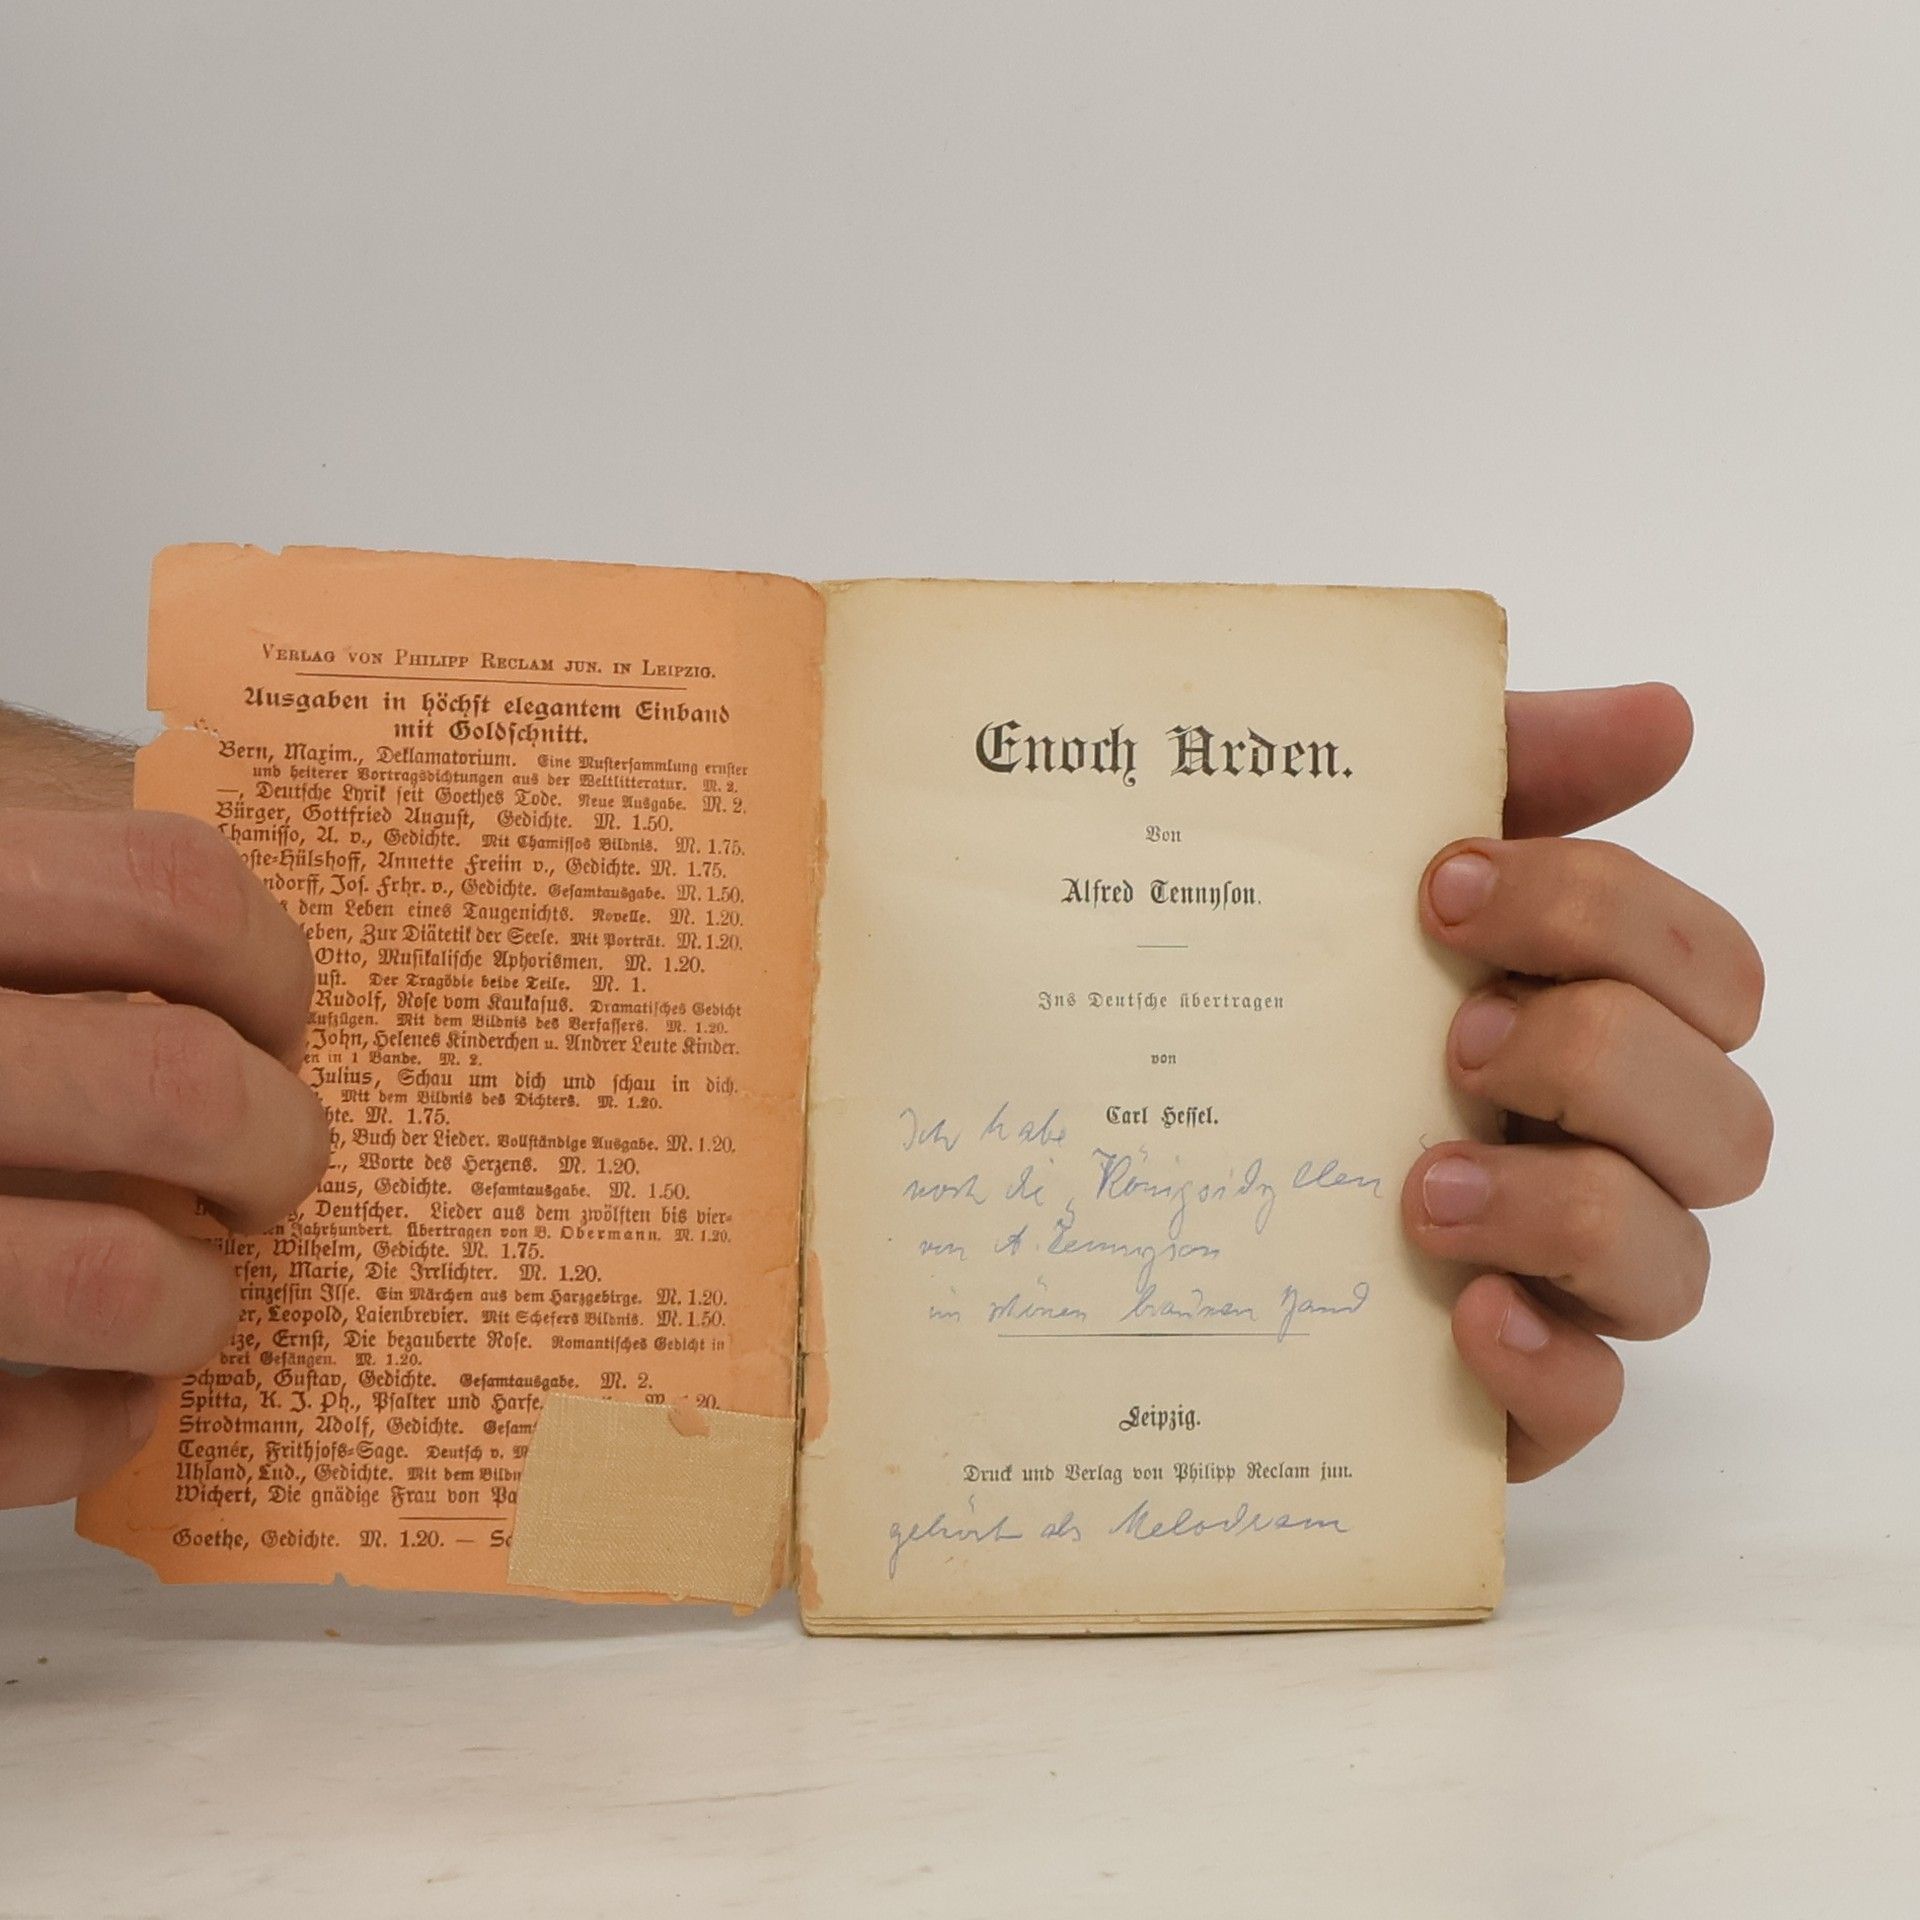 VERLAG VON PHILIPP RECLAM JUN. IN LEIPZIG.
Ausgaben in höchst elegantem Einband
mit Goldschnitt.
Bern, Maxim., Deklamatorium. Eine Mustersammlung ernster
und heiterer Vortragsdichtungen aus der Weltlitteratur. M. 2.
—, Deutsche Lyrik seit Goethes Tode. Neue Ausgabe. M. 2.
Bürger, Gottfried August, Gedichte. M. 1.50.
Chamisso, A. v., Gedichte. Mit Chamissos Bildnis. M. 1.75.
oste-Hülshoff, Annette Freiin v., Gedichte. M. 1.75.
ndorff, Jos. Frhr. v., Gedichte. Gesamtausgabe. M. 1.50.
s dem Leben eines Taugenichts. Novelle. M. 1.20.
leben, Zur Diätetik der Seele. Mit Porträt. M. 1.20.
Otto, Musikalische Aphorismen. M. 1.20.
ust. Der Tragödie beide Teile. M. 1.
Rudolf, Rose vom Kaukasus. Dramatisches Gedicht
Aufzügen. Mit dem Bildnis des Verfassers. M. 1.20.
, John, Helenes Kinderchen u. Andrer Leute Kinder.
en in 1 Bande. M. 2.
Julius, Schau um dich und schau in dich.
. Mit dem Bildnis des Dichters. M. 1.20.
hte. M. 1.75.
h, Buch der Lieder. Vollständige Ausgabe. M. 1.20.
., Worte des Herzens. M. 1.20.
laus, Gedichte. Gesamtausgabe. M. 1.50.
g, Deutscher. Lieder aus dem zwölften bis vier-
en Jahrhundert. Übertragen von B. Obermann. M. 1.20.
üller, Wilhelm, Gedichte. M. 1.75.
rsen, Marie, Die Irrlichter. M. 1.20.
rinzessin Ilse. Ein Märchen aus dem Harzgebirge. M. 1.20.
er, Leopold, Laienbrevier. Mit Schefers Bildnis. M. 1.50.
lze, Ernst, Die bezauberte Rose. Romantisches Gedicht in
drei Gesängen. M. 1.20.
Schwab, Gustav, Gedichte. Gesamtausgabe. M. 2.
Spitta, K. J. Ph., Psalter und Harfe. M. 1.20.
Strodtmann, Adolf, Gedichte. Gesam
Tegnér, Frithjofs-Sage. Deutsch v. M
Uhland, Lud., Gedichte. Mit dem Bildn
Wichert, Die gnädige Frau von Pa
Goethe, Gedichte. M. 1.20. — Sc
Enoch Arden.
Von
Alfred Tennyson.
Ins Deutsche übertragen
von
Carl Hessel.
Ich habe
noch die „Königsidyllen
von A. Tennyson
im schönen braunen Band
Leipzig.
Druck und Verlag von Philipp Reclam jun.
gehört als Melodram